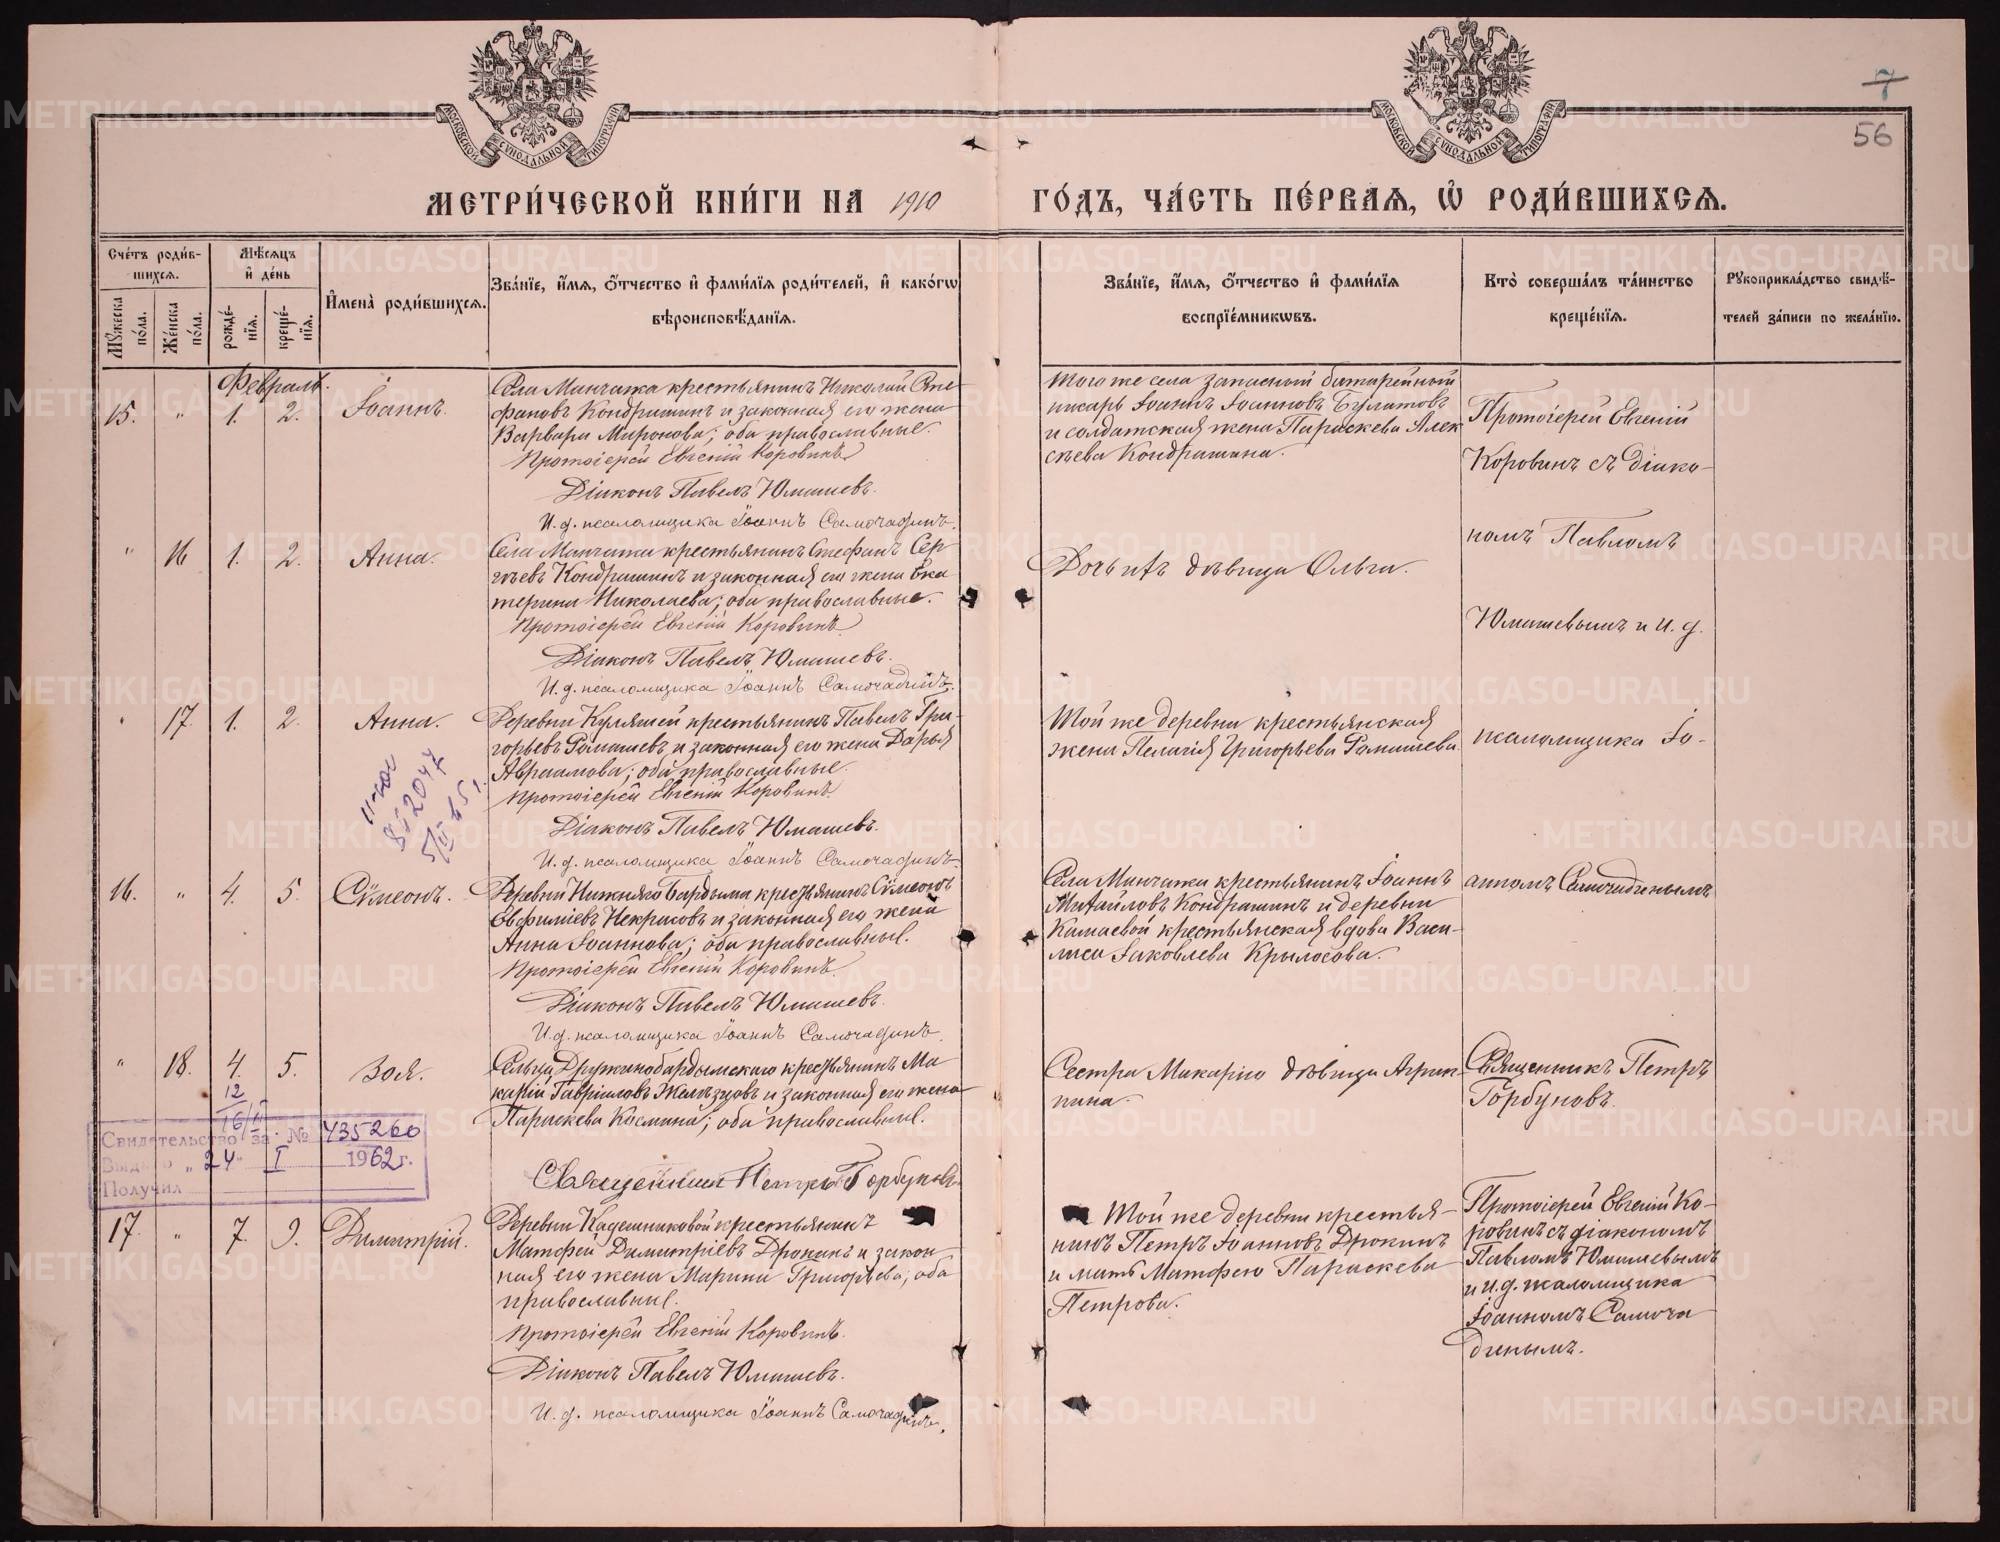 МОСКОВСКОЙ СѴНОДАЛЬНОЙ ТИПОГРАФІИ
МОСКОВСКОЙ СѴНОДАЛЬНОЙ ТИПОГРАФІИ
7
56
МЕТРИ́ЧЕСКОЙ КНИ́ГИ НА 1910 ГО́ДЪ, ЧА́СТЬ ПЕ́РВАЯ, Ѡ РОДИ́ВШИХСЯ.
Сче́тъ роди́в-
шихся.
Мѣ́сяцъ
и҆ де́нь
Мꙋжеска по́ла.
Же́нска по́ла.
рожде́-нїя.
креще́-нїя.
И҆мена̀ роди́вшихся.
Зва́нїе, и҆́мя, ѻ҆́тчество и҆ фами́лїя роди́телей, и҆ како́гѡ
вѣроисповѣ́данїя.
Зва́нїе, и҆́мя, ѻ҆́тчество и҆ фами́лїя
воспрїе́мникѡвъ.
Кто̀ соверша́лъ та́инство
креще́нїя.
Рꙋкоприкла́дство свидѣ́-
телей за́писи по жела́нїю.
Февраль.
15. " 1. 2. Іоаннъ.
Села Манчажа крестьянинъ Николай Сте-
фановъ Кондрашинъ и законная его жена
Варвара Миронова; оба православные.
Протоіерей Евгеній Коровинъ
Діаконъ Павелъ Юмашевъ.
И. д. псаломщика Іоаннъ Самочадинъ.
Того же села запасный батарейный
писарь Іоаннъ Іоанновъ Булатовъ
и солдатская жена Параскева Алек
сѣева Кондрашина.
Протоіерей Евгеній
Коровинъ съ діако-
номъ Павломъ
Юмашевымъ и И. д.
псаломщика Іо-
анномъ Самочадинымъ
" 16 1. 2. Анна.
Села Манчажа крестьянинъ Стефанъ Сер-
гѣевъ Кондрашинъ и законная его жена Ека
терина Николаева; оба православные.
Протоіерей Евгеній Коровинъ
Діаконъ Павелъ Юмашевъ.
И. д. псаломщика Іоаннъ Самочадинъ.
Дочь ихъ дѣвица Ольга.
" 17. 1. 2. Анна.
Деревни Куляшей крестьянинъ Павелъ Гри-
горьевъ Ромашевъ и законная его жена Дарья
Авраамова; оба православные.
Протоіерей Евгеній Коровинъ.
Діаконъ Павелъ Юмашевъ.
И. д. псаломщика Іоаннъ Самочадинъ.
Той же деревни крестьянская
жена Пелагія Григорьева Ромашева.
II-юи
852047
5/II 65 г.
16. " 4. 5. Сѵмеонъ.
Деревни Нижняго Бардыма крестьянинъ Сѵмеонъ
Евфиміевъ Некрасовъ и законная его жена
Анна Іоаннова; оба православные.
Протоіерей Евгеній Коровинъ.
Діаконъ Павелъ Юмашевъ.
И. д. псаломщика Іоаннъ Самочадинъ.
Села Манчажа крестьянинъ Іоаннъ
Михайловъ Кондрашинъ и деревни
Камаевой крестьянская вдова Васи-
лиса Іаковлева Крылосова.
" 18. 4. 5. Зоя.
Сельца Дружинобардымскаго крестьянинъ Ма-
карій Гавріиловъ Желѣзцовъ и законная его жена
Параскева Космина; оба православные.
Священникъ Петръ Горбуновъ
Сестра Макарія дѣвица Агрип-
пина.
Священникъ Петръ
Горбуновъ.
12
16/II
Свидетельство за № 435260
Выдано „24" I 1962 г.
Получил
17. " 7. 9. Димитрій.
Деревни Кадешниковой крестьянинъ
Матфей Димитріевъ Дрокинъ и закон
ная его жена Марина Григорьева; оба
православные.
Протоіерей Евгеній Коровинъ.
Діаконъ Павелъ Юмашевъ.
И. д. псаломщика Іоаннъ Самочадинъ.
Той же деревни крестья-
нинъ Петръ Іоанновъ Дрокинъ
и мать Матфея Параскева
Петрова.
Протоіерей Евгеній Ко-
ровинъ съ діакономъ
Павломъ Юмашевымъ
и И. д. псаломщика
Іоанномъ Самоча
динымъ.
METRIKI.GASO-URAL.RU